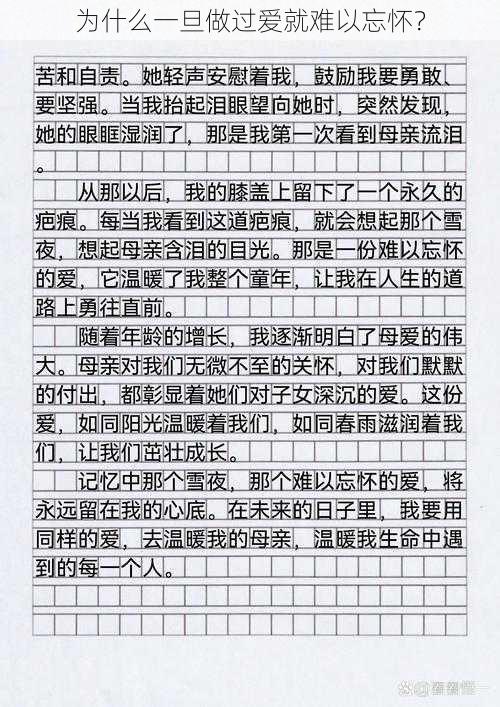 为什么一旦做过爱就难以忘怀？
苦和自责。她轻声安慰着我，鼓励我要勇敢、
要坚强。当我抬起泪眼望向她时，突然发现，
她的眼眶湿润了，那是我第一次看到母亲流泪
。
从那以后，我的膝盖上留下了一个永久的
疤痕。每当我看到这道疤痕，就会想起那个雪
夜，想起母亲含泪的目光。那是一份难以忘怀
的爱，它温暖了我整个童年，让我在人生的道
路上勇往直前。
随着年龄的增长，我逐渐明白了母爱的伟
大。母亲对我们无微不至的关怀，对我们默默
的付出，都彰显着她们对子女深沉的爱。这份
爱，如同阳光温暖着我们，如同春雨滋润着我
们，让我们茁壮成长。
记忆中那个雪夜，那个难以忘怀的爱，将
永远留在我的心底。在未来的日子里，我要用
同样的爱，去温暖我的母亲，温暖我生命中遇
到的每一个人。